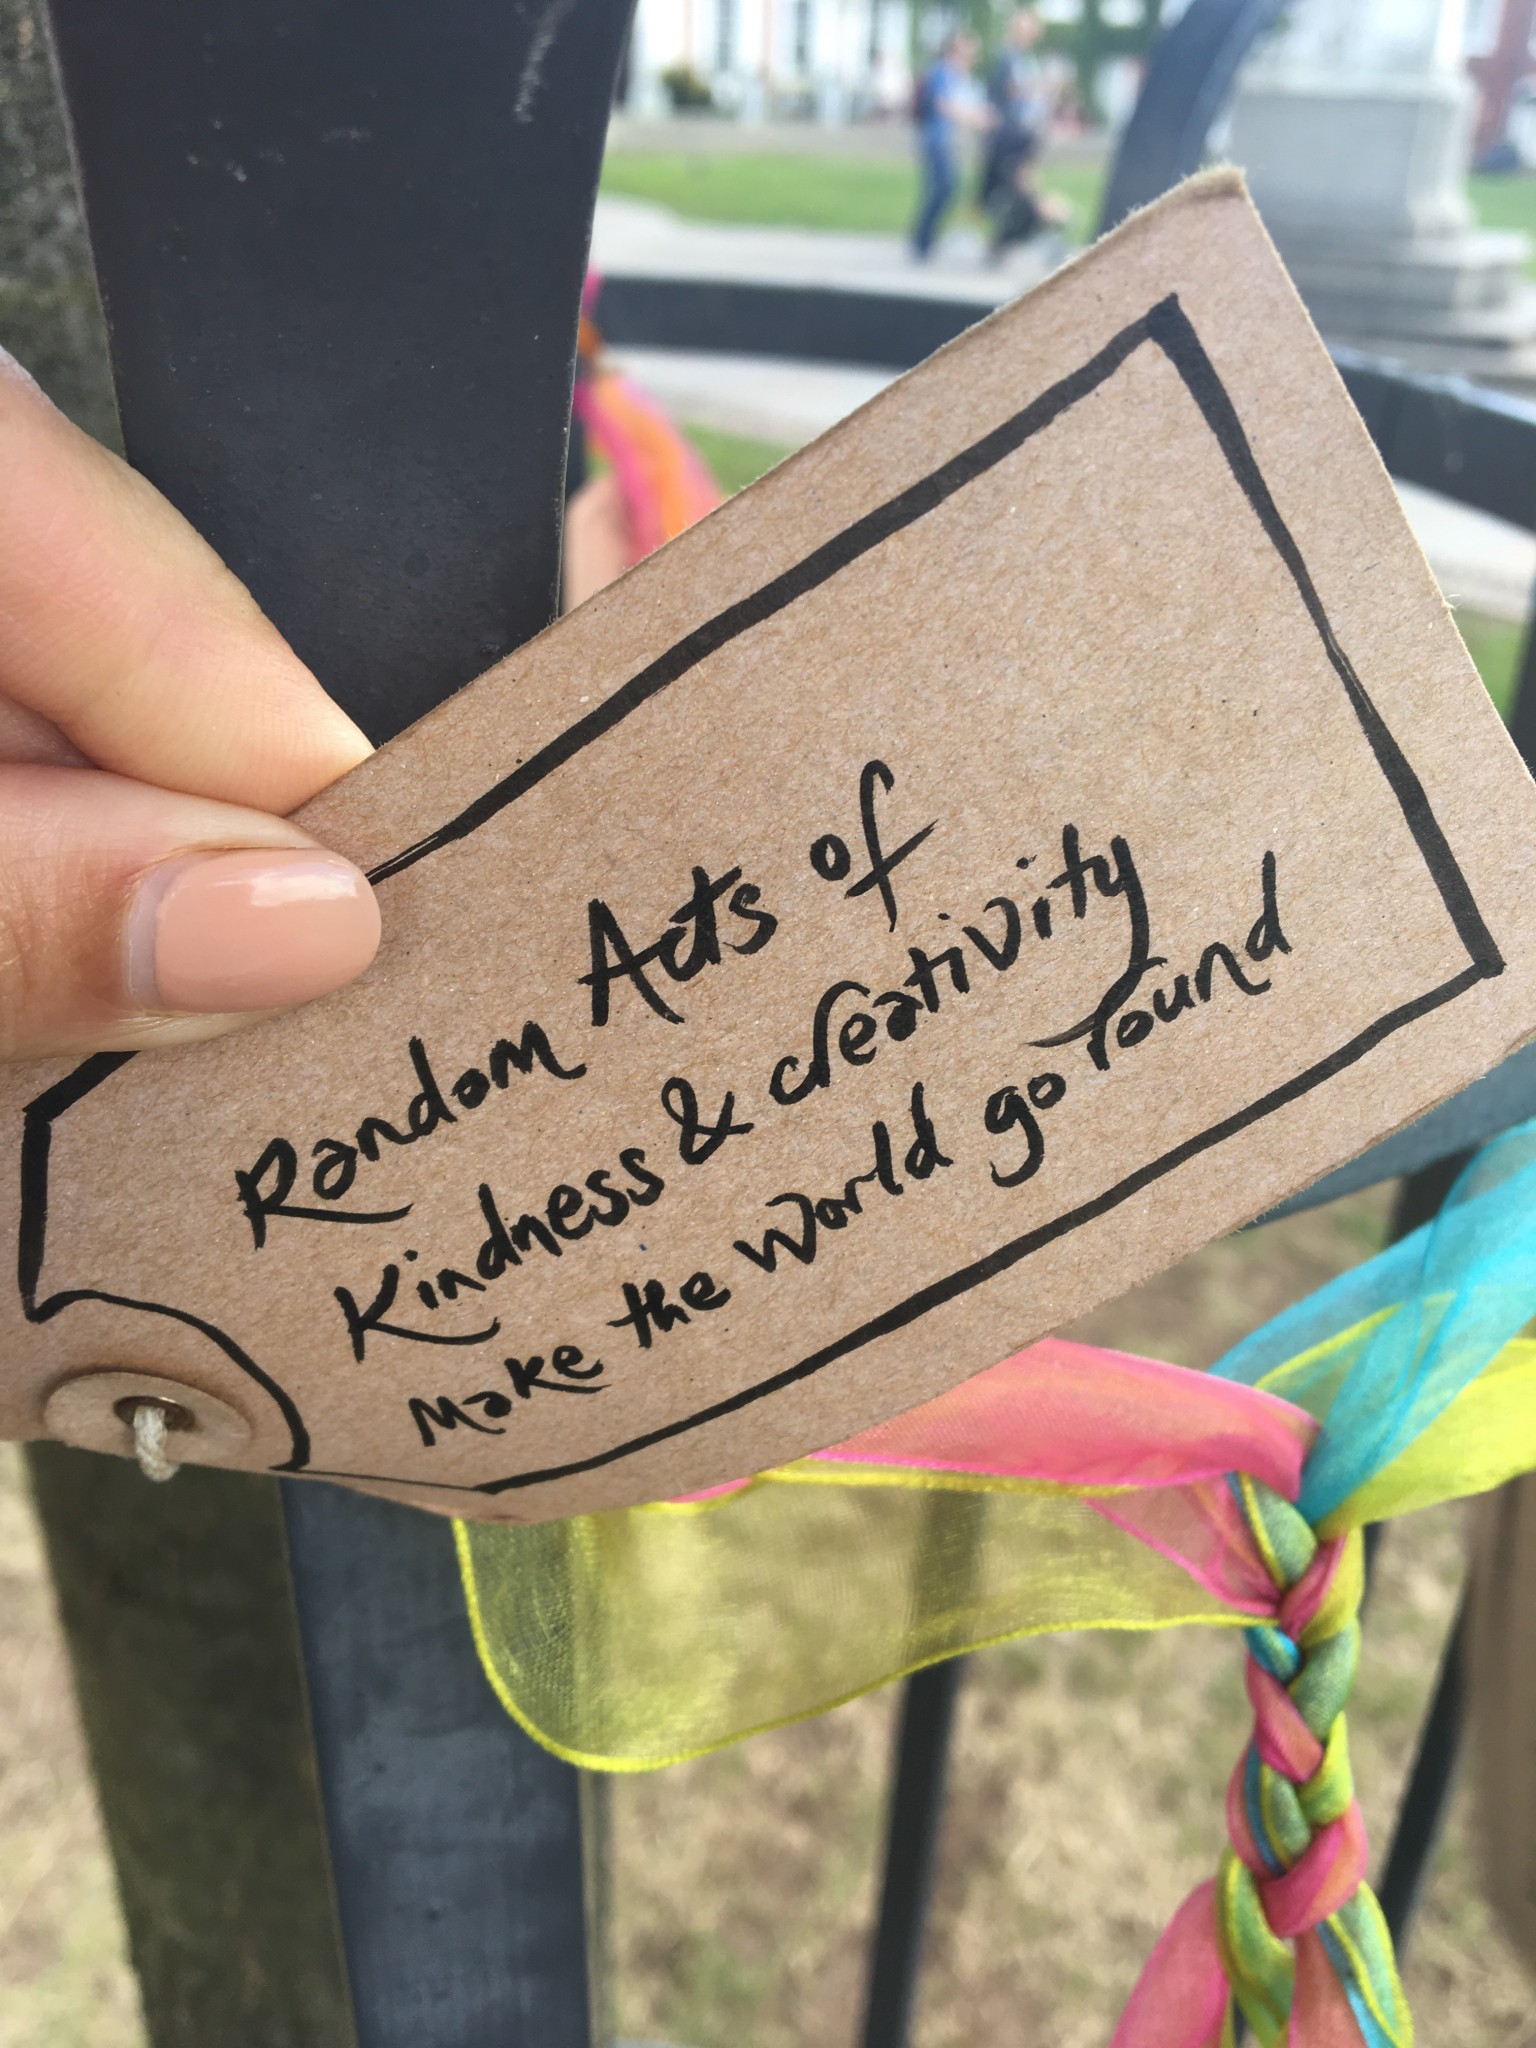 Random Acts of
Kindness & creativity
Make the world go round